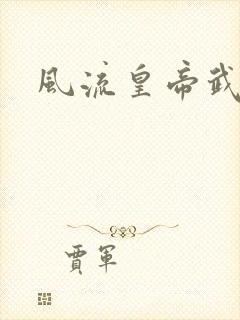 風流皇帝武
賈軍